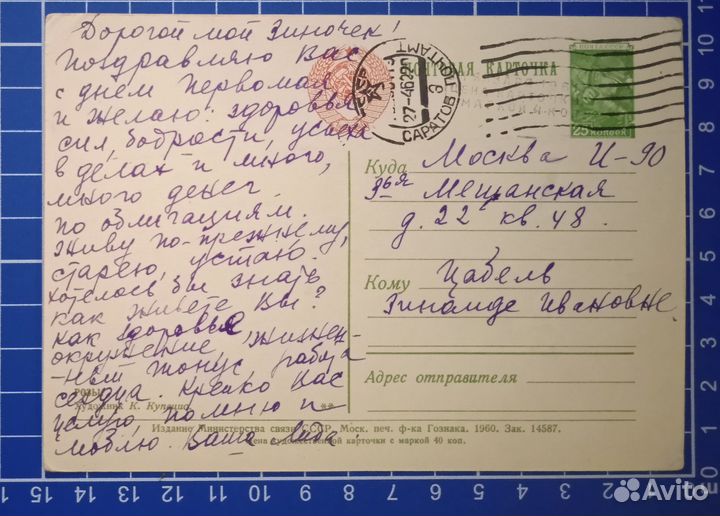 Дорогой мой Зиночек!
Поздравляю Вас
с днем Первомая
и желаю: здоровья
сил, бодрости, успеха
в делах и много,
много денег
по облигациям.
Живу по-прежнему,
старею, устаю.
Хотелось бы знать
как живете Вы?
Как здоровье
окружение, жизнен-
-ный тонус, работа
сердца. Крепко Вас
целую, помню и
люблю. Ваша
РОЗЫ
Художник К. Купецио
**
ПОЧТОВАЯ КАРТОЧКА
СССР
САРАТОВ ПОЧТАМТ
ПОЧТА СССР
25 КОПЕЕК
Куда Москва И-90
3ья Мещанская
д. 22 кв. 48.
Кому Цабель
Зинаиде Ивановне.
Адрес отправителя
Издание Министерства связи СССР. Моск. печ. ф-ка Гознака. 1960. Зак. 14587.
Цена художественной карточки с маркой 40 коп.
15 14 13 12 11 10 9 8 7 6 5 4 3 2 1
10 9 8 7 6 5 4 3 2 1
Avito